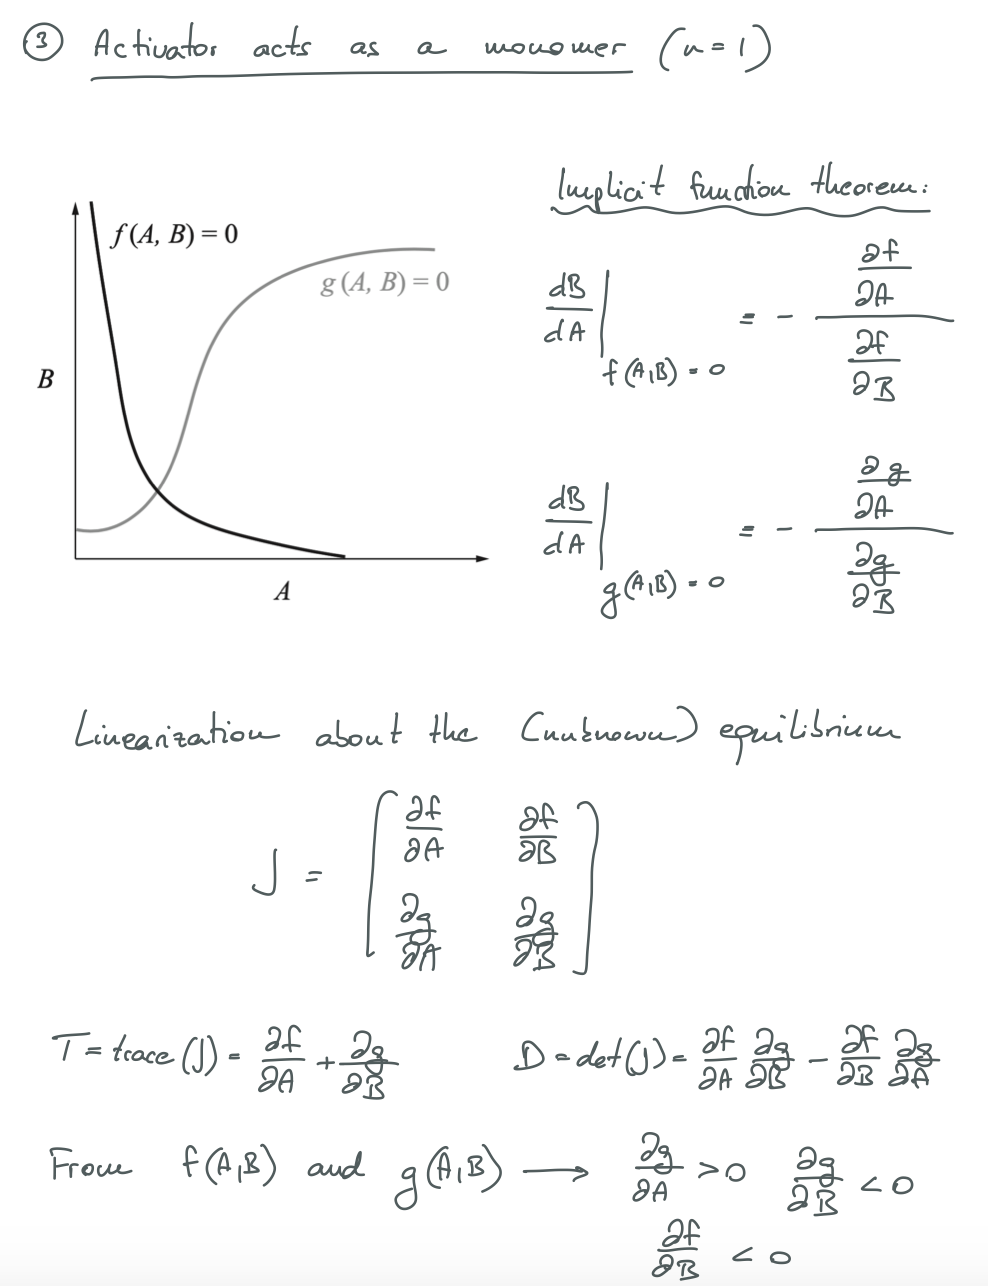 ③ Activator acts as a monomer (n = 1)
Implicit function theorem:
f(A, B) = 0
g(A, B) = 0
B
A
dB/dA | f(A,B) = 0 = - ∂f/∂A / ∂f/∂B
dB/dA | g(A,B) = 0 = - ∂g/∂A / ∂g/∂B
Linearization about the (unknown) equilibrium
J = [ ∂f/∂A ∂f/∂B
∂g/∂A ∂g/∂B ]
T = trace (J) = ∂f/∂A + ∂g/∂B D = det(J) = ∂f/∂A ∂g/∂B - ∂f/∂B ∂g/∂A
From f(A,B) and g(A,B) ⟶ ∂g/∂A > 0 ∂g/∂B < 0
∂f/∂B < 0